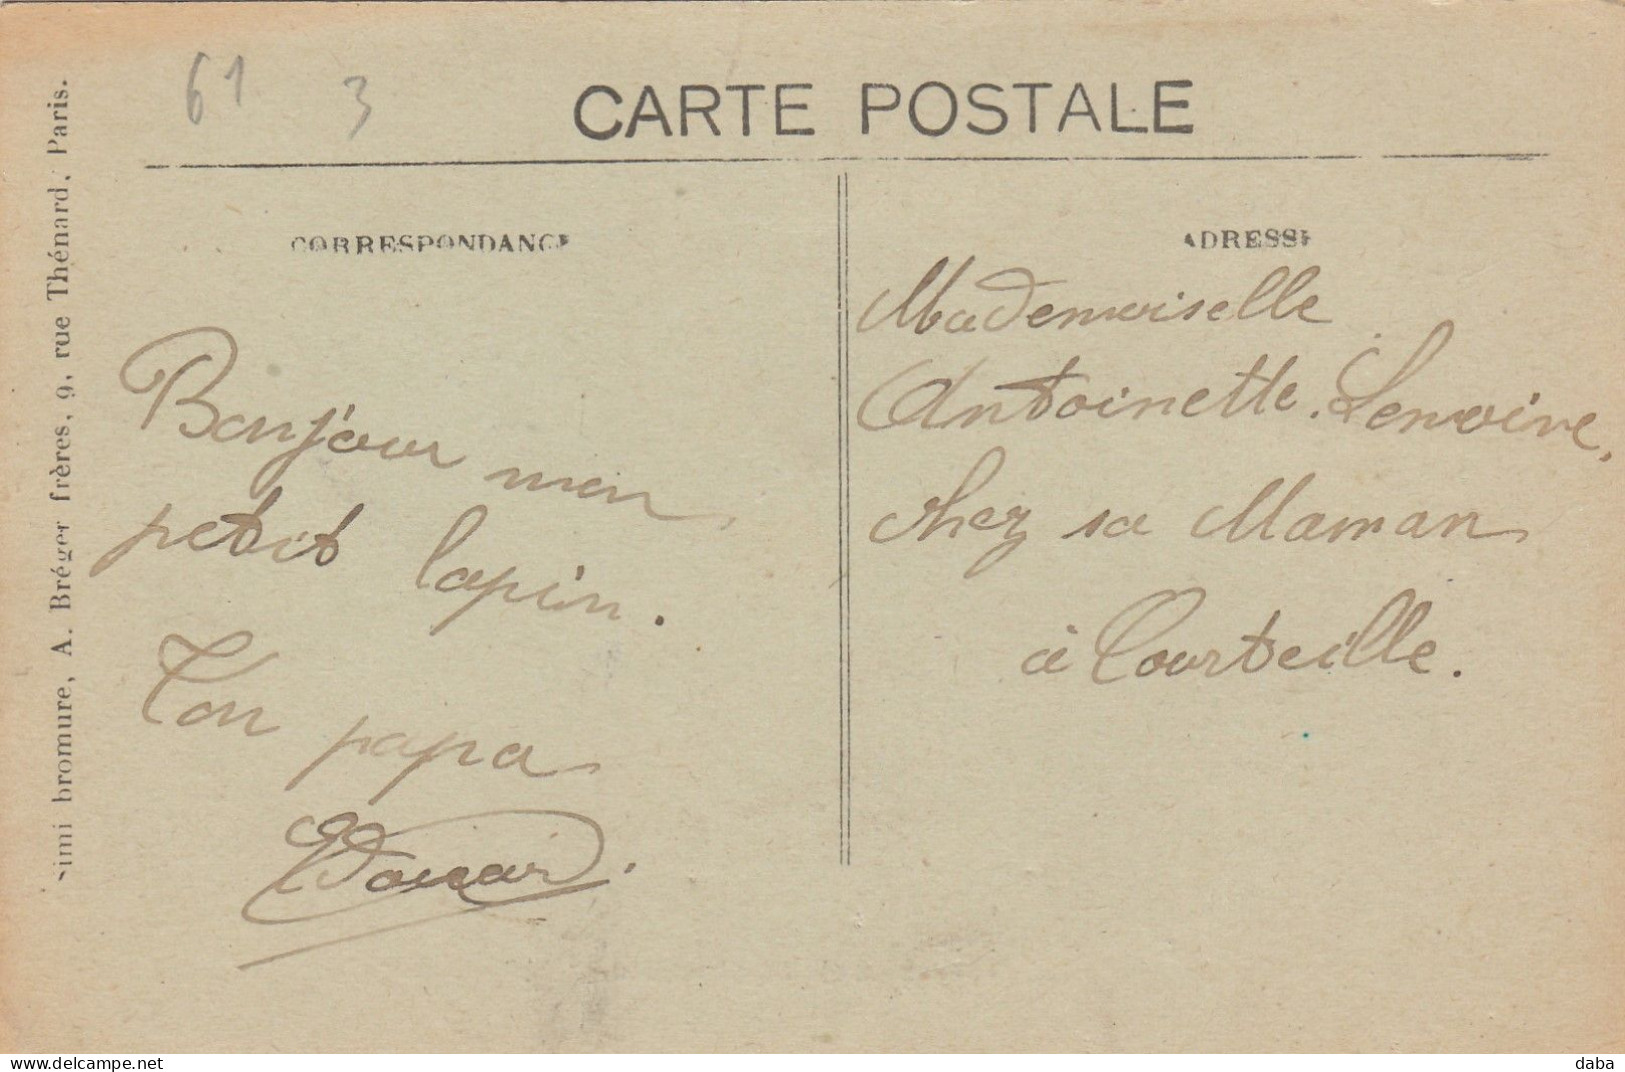 61 3
CARTE POSTALE
CORRESPONDANCE
ADRESSE
Simi bromure, A. Bréger frères, 9, rue Thénard, Paris.
Bonjour mon
petit lapin.
Ton papa
Edouard.
Mademoiselle
Antoinette Lenoire,
chez sa Maman
à Courteille.
www.delcampe.net
daba